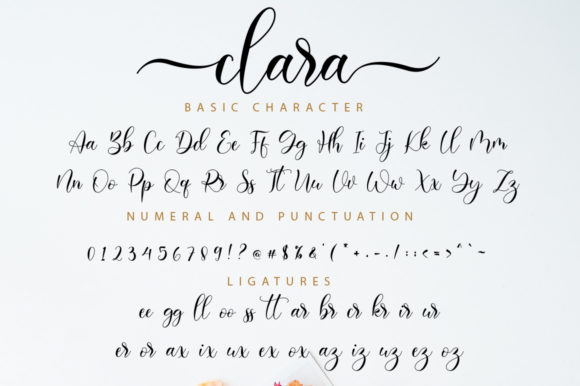 clara
BASIC CHARACTER
Aa Bb Cc Dd Ee Ff Gg Hh Ii Jj Kk Ll Mm
Nn Oo Pp Qq Rr Ss Tt Uu Vv Ww Xx Yy Zz
NUMERAL AND PUNCTUATION
0123456789!?@#$%&'(*+,-./:;<=>^`~
LIGATURES
ee gg ll oo ss tt ar br cr kr ir ur
er or ax ix ux ex ox az iz uz ez oz